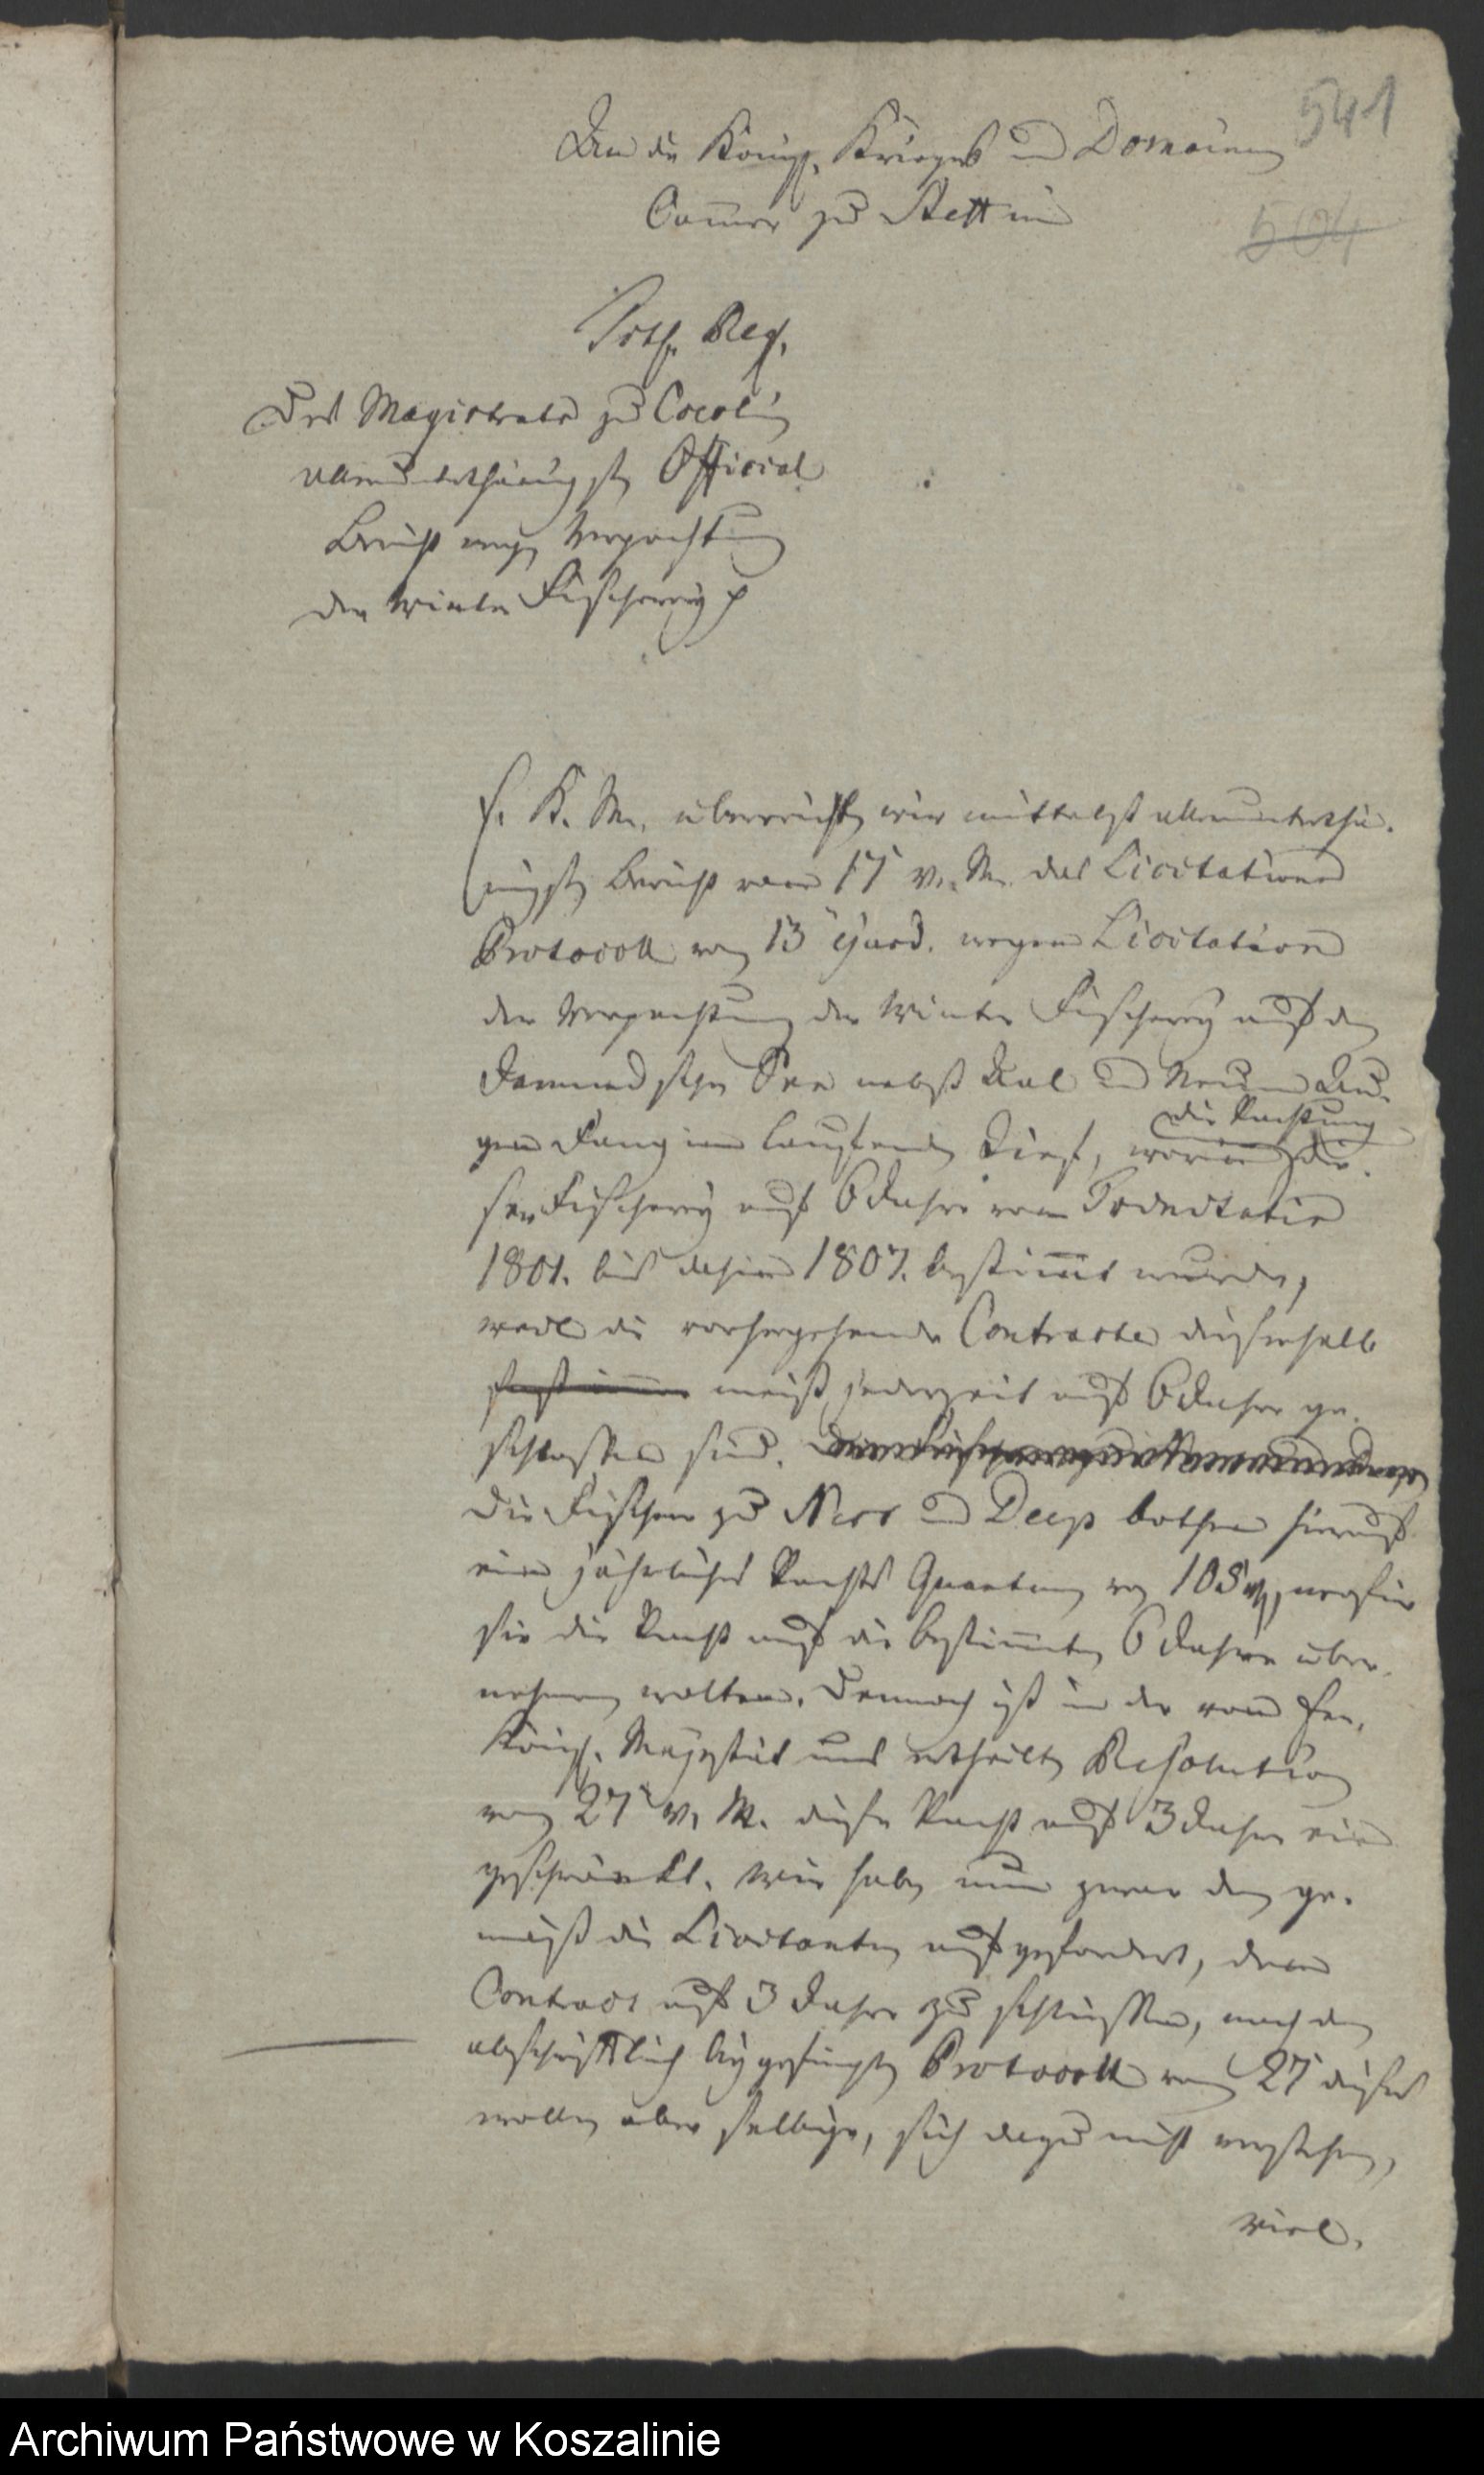 541
An die Königl. Krieges und Domainen
Cammer zu Stettin
504
Des Magistrats zu Coeslin
allerunterthänigster Official
Bericht wegen Verpachtung
der Winter Fischerey
E. K. M. überreichten wir mittelst allerunterthä-
nigsten Bericht vom 17 v. M. das Licitations
Protocoll vom 13 ejusd. wegen Licitation
der Verpachtung der Winter Fischerey auf dem
Jamundschen See nebst Aal und Neun Au-
gen Fang im laufenden Tief, worin die
die Pachtung
ser Fischerey auf 6 Jahre von Trinitatis
1801. bis dahin 1807. bestimmt wurde,
weil die vorhergehende Contracte dieserhalb
meist jederzeit auf 6 Jahre ge-
schlossen sind.
Die Fischer zu Nest und Deep bothen hierauf
ein jährliches Pachts Quantum von 105 wofür
sie die Pacht auf die bestimmten 6 Jahre über-
nehmen wolten. Dennoch ist in der von Ew.
Königl. Majestät uns ertheilten Resolution
vom 27 v. M. diese Pacht auf 3 Jahre ein
geschränkt. Wir haben nun zwar dem ge-
mäß die Licitanten aufgefordert, den
Contract auf 3 Jahre zu schließen, nach dem
abschriftlich beygefügten Protocoll vom 27 dieses
wollen aber selbige, sich dazu nicht verstehen,
weil
Archiwum Państwowe w Koszalinie